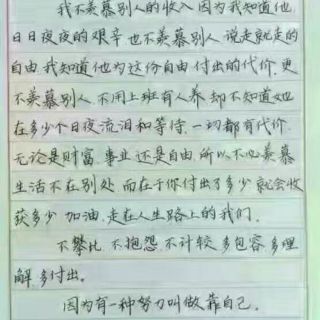 我不羡慕别人的收入 因为我知道他
日日夜夜的艰辛 也不羡慕别人 说走就走的
自由 我知道他为这份自由付出的代价 更
不羡慕别人 不用上班有人养 却不知道她
在多少个日夜流泪和等待 一切都有代价
无论是财富 事业 还是自由 所以不必羡慕
生活不在别处 而在于你付出了多少 就会收
获多少 加油 走在人生路上的我们。
不攀比 不抱怨 不计较 多包容 多理
解 多付出。
因为有一种努力叫做靠自己。